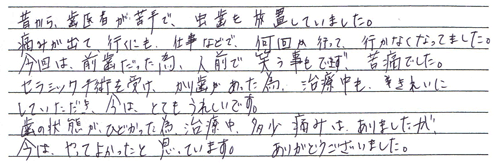 昔から、歯医者が苦手で、虫歯を放置していました。
痛みが出て、行くにも、仕事などで、何回か行って、行かなくなってました。
今回は、前歯だった為、人前で笑う事もできず苦痛でした。
セラミック手術を受け、かり歯があった為、治療中も、きれいに
していただき、今は、とてもうれしいです。
歯の状態が、ひどかった為、治療中、多少痛みは、ありましたが、
今は、やってよかったと思っています。ありがとうございました。